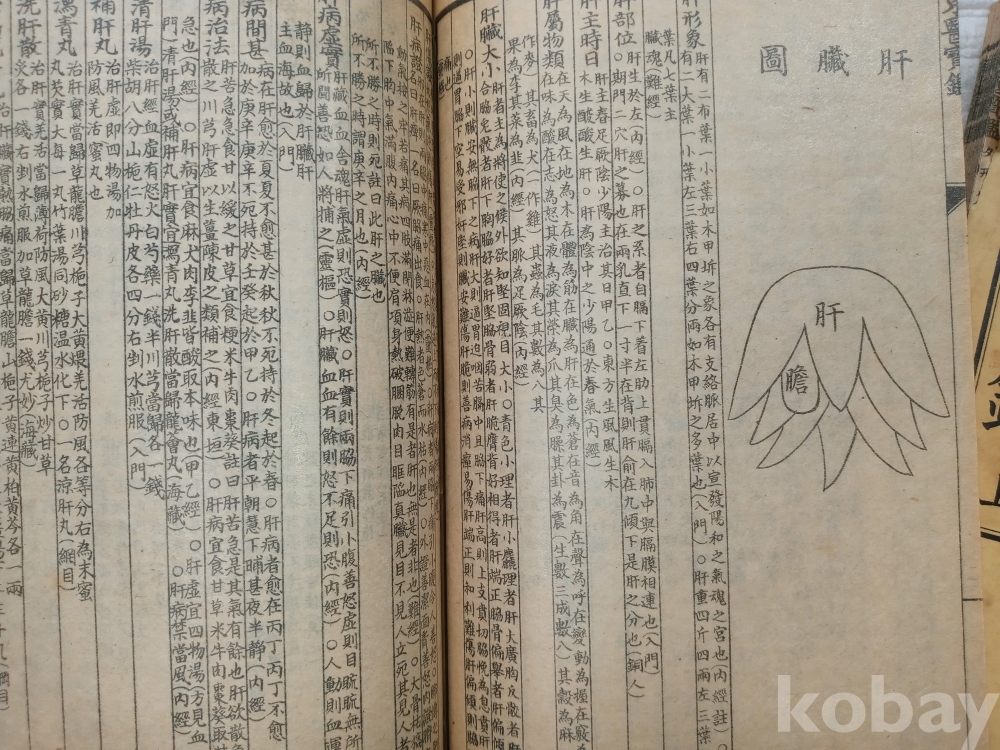 肝臟圖
肝
膽
肝形象 肝有二布葉一小葉如木甲坼之象各有支絡脈居中以宣發陽和之氣魂之宮也(內經註)○
有二大葉一小葉左三葉右四葉分兩如木甲坼之多葉也(入門)○肝重四斤四兩左三葉
葉凡七葉主
臟魂難經)
肝部位 肝生於左(內經)○肝之系者自膈下着左肋上貫膈入肺中與膈膜相連也(入門)
○期門二穴肝之募也在兩乳直下一寸半在背則肝俞在九顀下是肝之分也(銅人)
肝主時日 肝主春足厥陰少陽主治其日甲乙○東方生風風生木
木生酸酸生肝○肝為陰中之少陽通於春氣(內經)
肝屬物類 在天為風在地為木在體為筋在臟為肝在色為蒼在音為角在聲為呼在變動為握在竅為
在味為酸在志為怒其液為淚其榮為爪其臭為臊其卦為震(生數三成數八)其穀為麻
作麥)其畜為犬(一作雞)其蟲為毛其數為八其
果為李其菜為韭(內經)其脈為足厥陰(內經)
肝臟大小 肝者主為將使之候外欲知堅固視目大小○青色小理者肝小麤理者肝大廣胸反骹者肝
合脇兔骹者肝下胸脇好者肝堅脇骨弱者肝脆膺背好相得者肝端正脇骨偏舉者肝偏傾
○肝小則臟安無脇下之病肝大則逼胃迫咽苦膈中且脇下痛肝高則上支賁切脇悗為息賁肝
則逼胃脇下空易受邪肝堅則臟安難傷肝脆則善病消癉易傷肝端正則和利難傷肝偏傾則脇
陷下胸中氣滿腹內痛心中不便肩項身熱破䐃脫肉目眶陷真臟見目不見人立死其見人者
所不勝之時則死註曰此肝之臟也
所不勝之時謂庚辛之月也(內經)
肝病虛實 肝藏血血舍魂肝氣虛則恐實則怒○肝實則兩脇下痛引小腹善怒虛則目䀮䀮無所
所聞善恐如人將捕之(靈樞)○肝臟血血有餘則怒不足則恐(內經)○人動則血運
靜則血歸於肝臟肝
主血海故也(入門)
病間甚 病在肝愈於夏夏不愈甚於秋秋不死持於冬起於春○肝病者愈在丙丁丙丁不愈
加於庚辛庚辛不死持於壬癸起於甲乙○肝病者平朝慧下晡甚夜半靜(內經)
病治法 肝苦急急食甘以緩之甘草宜食粳米牛肉棗葵註曰肝苦急是其氣有餘也肝欲散急
散之川芎肝虛以生薑陳皮之類補之(內經東垣)○肝病宜食甘草米牛肉棗葵取
急也(內經)○肝病宜食麻犬肉李韭皆酸取本味也(甲乙經)○肝虛宜四物湯(方見血
門)清肝湯或補肝丸肝實宜瀉青丸洗肝散當歸龍會丸(海藏)○肝病禁當風(內經)
清肝湯 治肝經血虛有怒火白芍藥一錢半川芎當歸各一錢
柴胡八分山梔仁牡丹皮各四分右剉水煎服(入門)
補肝丸 治肝虛即四物湯加
防風羌活蜜丸也
瀉青丸 治肝實當歸草龍膽川芎梔子大黃煨羌活防風各等分右為末蜜
丸芡實大每一丸竹葉湯同砂糖溫水化下○一名涼肝丸(綱目)
洗肝散 治肝實羌活當歸薄荷防風大黃川芎梔子炒甘草
炙各一錢右剉水煎服加草龍膽一錢尤妙(海藏)
治肝臟實熱脇痛當歸草龍膽山梔子黃連黃栢黃芩各一兩
kobay